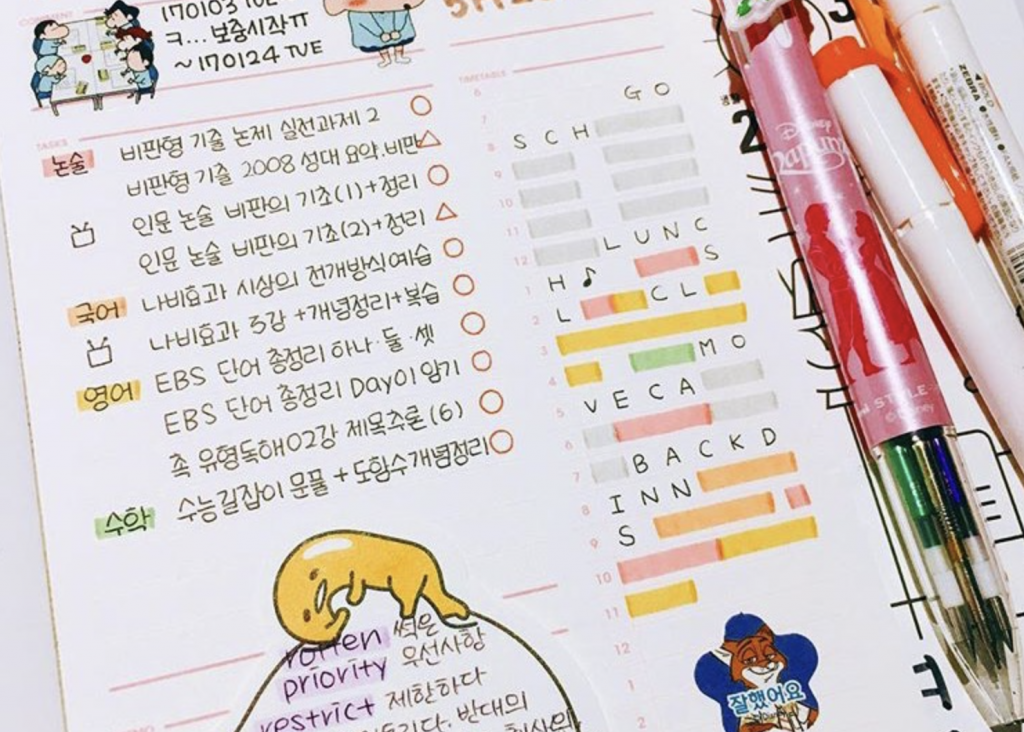 COMMENT
170103 TUE
ㅋ...보충시작ㅠ
~170124 TUE
TASKS
논술 비판형 기출 논제 실전과제 2
비판형 기출 2008 성대 요약.비판
인문 논술 비판의 기초(1)+정리
인문 논술 비판의 기초(2)+정리
국어 나비효과 시상의 전개방식예습
나비효과 3강 +개념정리+복습
영어 EBS 단어 총정리 하나·둘·셋
EBS 단어 총정리 Day01암기
촉 유형독해02강 제목추론(6)
수학 수능길잡이 문풀 + 도함수개념정리
rotten 썩은
priority 우선사항
restrict 제한하다
반대의
TIMETABLE
6
GO
7
SCH
8
9
10
11
LUNC
12
S
H♪
1
L CL
2
3
MO
4
VECA
5
6
BACKD
7
INN
8
S
9
10
11
12
1
2
잘했어요
Disney
Rapunzel
STYLE
©Disney
ZEBRA
2
3